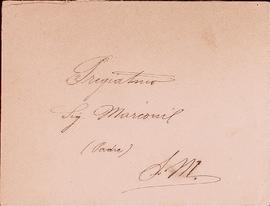 Pregiatmo
Sig Marconil
(Padre)
S. M.